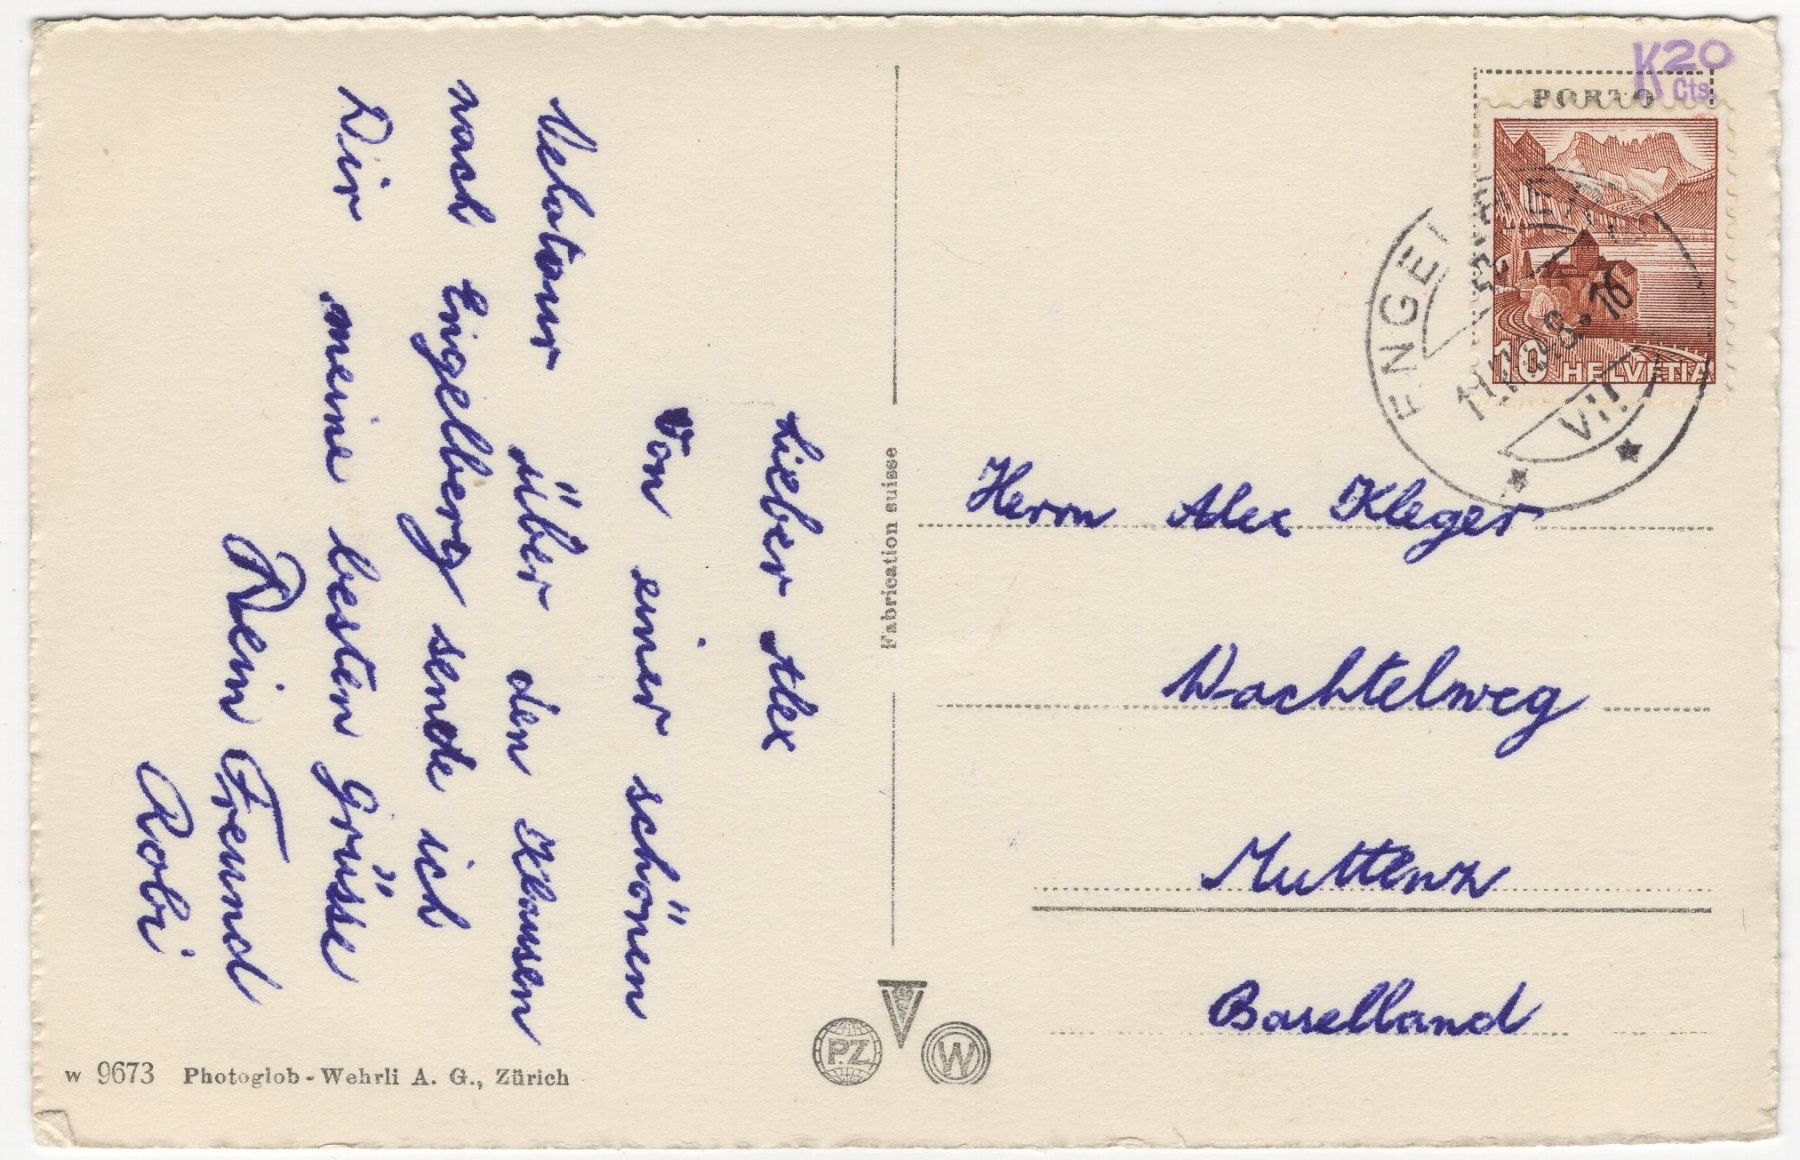 Lieber Alex
Von einer schönen
Velotour über den Klausen
nach Engelberg sende ich
Dir meine besten Grüsse
Dein Freund
Robi
w 9673 Photoglob-Wehrli A. G., Zürich
Fabrication suisse
PZ
W
K20
Cts.
PORTO
10 HELVETIA
VII
Herrn Alex Kleger
Wachtelweg
Muttenz
Baselland